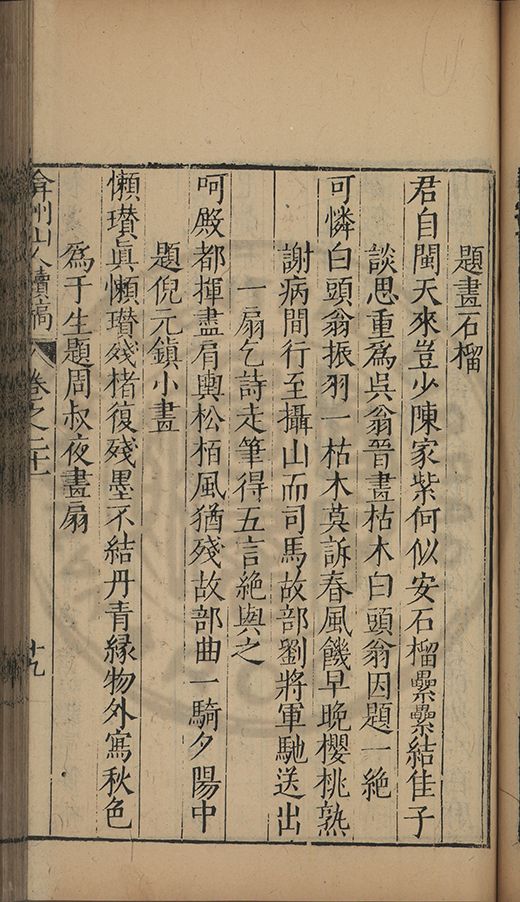 題畫石榴
君自閩天來豈少陳家紫何似安石榴纍纍結佳子
談思重爲吳翁晉畫枯木白頭翁因題一絶
可憐白頭翁振羽一枯木莫訴春風饑早晚櫻桃熟
謝病間行至攝山而司馬故部劉將軍馳送出
一扇乞詩走筆得五言絶與之
呵殿都揮盡肩輿松栢風猶殘故部曲一騎夕陽中
題倪元鎮小畫
懶瓚眞懶瓚殘楮復殘墨不結丹青緣物外寫秋色
爲于生題周叔夜畫扇
弇州山人續稿
卷之二十二
十九